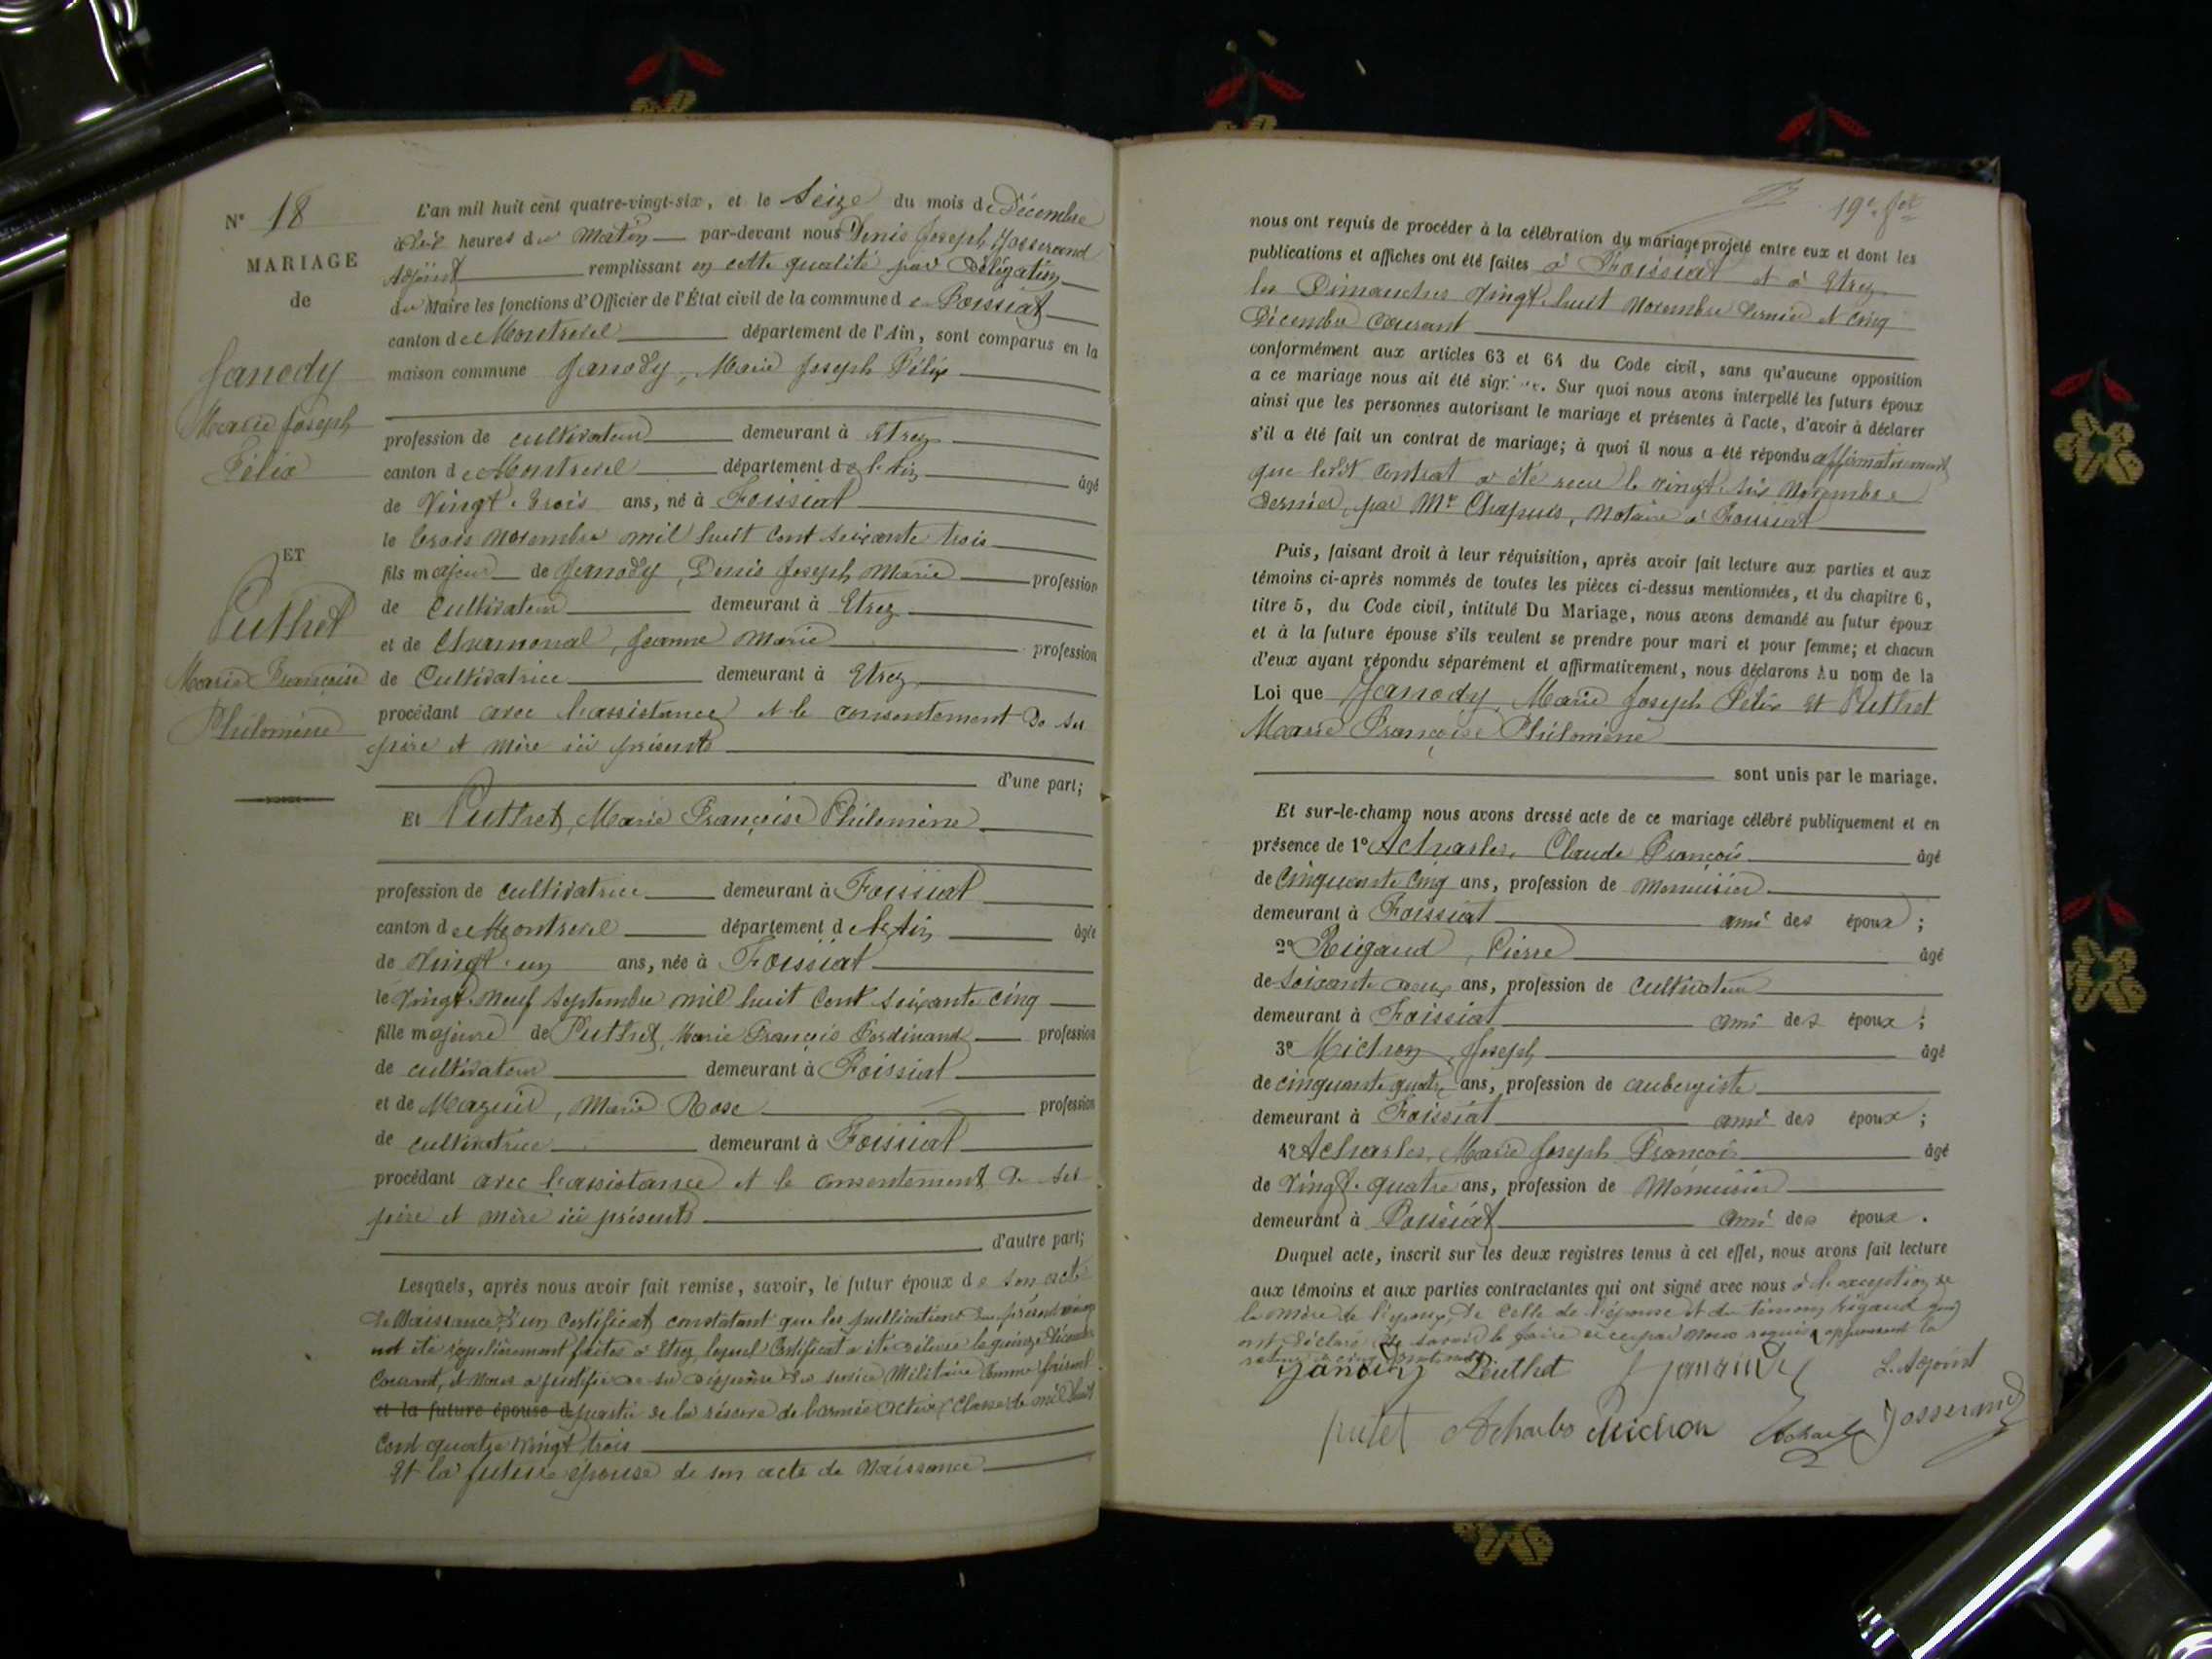 N° 18
MARIAGE
de
Janody
Marie Joseph
Félix
ET
Puthet
Marie Françoise
Philomène
L'an mil huit cent quatre-vingt-six, et le Seize du mois de Décembre
à dix heures du Matin par-devant nous Denis Joseph Josserand
Adjoint remplissant en cette qualité par Délégation
du Maire les fonctions d'Officier de l'État civil de la commune de Foissiat
canton de Montrevel département de l'Ain, sont comparus en la
maison commune Janody, Marie Joseph Félix
profession de cultivateur demeurant à Etrez
canton de Montrevel département de l'Ain âgé
de Vingt-trois ans, né à Foissiat
le trois Novembre mil huit Cent soixante trois
fils majeur de Janody, Denis Joseph Marie profession
de Cultivateur demeurant à Etrez
et de Charnonal, Jeanne Marie profession
de Cultivatrice demeurant à Etrez
procédant avec l'assistance et le consentement de ses
père et mère ici présents
d'une part;
Et Puthet, Marie Françoise Philomène
profession de cultivatrice demeurant à Foissiat
canton de Montrevel département de l'Ain âgée
de Vingt-un ans, née à Foissiat
le Vingt-Neuf Septembre mil huit Cent soixante cinq
fille majeure de Puthet, Marie François Ferdinand profession
de cultivateur demeurant à Foissiat
et de Mazuir, Marie Rose profession
de cultivatrice demeurant à Foissiat
procédant avec l'assistance et le consentement de ses
père et mère ici présents
d'autre part;
Lesquels, après nous avoir fait remise, savoir, le futur époux de son acte
de Naissance, d'un Certificat constatant que les publications du présent
ont été régulièrement faites à Etrez, lequel Certificat a été délivré le quinze Décembre
Courant, et nous a justifié de sa dispense du service Militaire Comme faisant
et la future épouse d partie de la réserve de l'armée active (Classe de mil huit
Cent quatre vingt trois
Et la future épouse de son acte de Naissance
19e fet
nous ont requis de procéder à la célébration du mariage projeté entre eux et dont les
publications et affiches ont été faites à Foissiat et à Etrez
les Dimanches Vingt-huit Novembre dernier et cinq
Décembre Courant
conformément aux articles 63 et 64 du Code civil, sans qu'aucune opposition
a ce mariage nous ait été signifiée. Sur quoi nous avons interpellé les futurs époux
ainsi que les personnes autorisant le mariage et présentes à l'acte, d'avoir à déclarer
s'il a été fait un contrat de mariage; à quoi il nous a été répondu affirmativement
que ledit Contrat a été reçu le vingt-six Novembre
Dernier, par Mr Chapuis, Notaire à Foissiat
Puis, faisant droit à leur réquisition, après avoir fait lecture aux parties et aux
témoins ci-après nommés de toutes les pièces ci-dessus mentionnées, et du chapitre 6,
titre 5, du Code civil, intitulé Du Mariage, nous avons demandé au futur époux
et à la future épouse s'ils veulent se prendre pour mari et pour femme; et chacun
d'eux ayant répondu séparément et affirmativement, nous déclarons Au nom de la
Loi que Janody, Marie Joseph Félix et Puthet
Marie Françoise Philomène
sont unis par le mariage.
Et sur-le-champ nous avons dressé acte de ce mariage célébré publiquement et en
présence de 1° Acharles, Claude François âgé
de Cinquante Cinq ans, profession de Menuisier
demeurant à Foissiat ami des époux ;
2° Rigaud, Pierre âgé
de soixante deux ans, profession de Cultivateur
demeurant à Foissiat ami des époux ;
3° Michon, Joseph âgé
de cinquante quatre ans, profession de aubergiste
demeurant à Foissiat ami des époux ;
4° Acharles, Marie Joseph François âgé
de Vingt-quatre ans, profession de Menuisier
demeurant à Foissiat ami des époux .
Duquel acte, inscrit sur les deux registres tenus à cet effet, nous avons fait lecture
aux témoins et aux parties contractantes qui ont signé avec nous à l'exception de
la Mère de l'époux, de Celle de l'épouse et du témoin Rigaud qui
ont déclaré ne savoir le faire de ce par nous requis
Janody Puthet Janody L. Adjoint
putet Acharles Michon Acharles Josserand